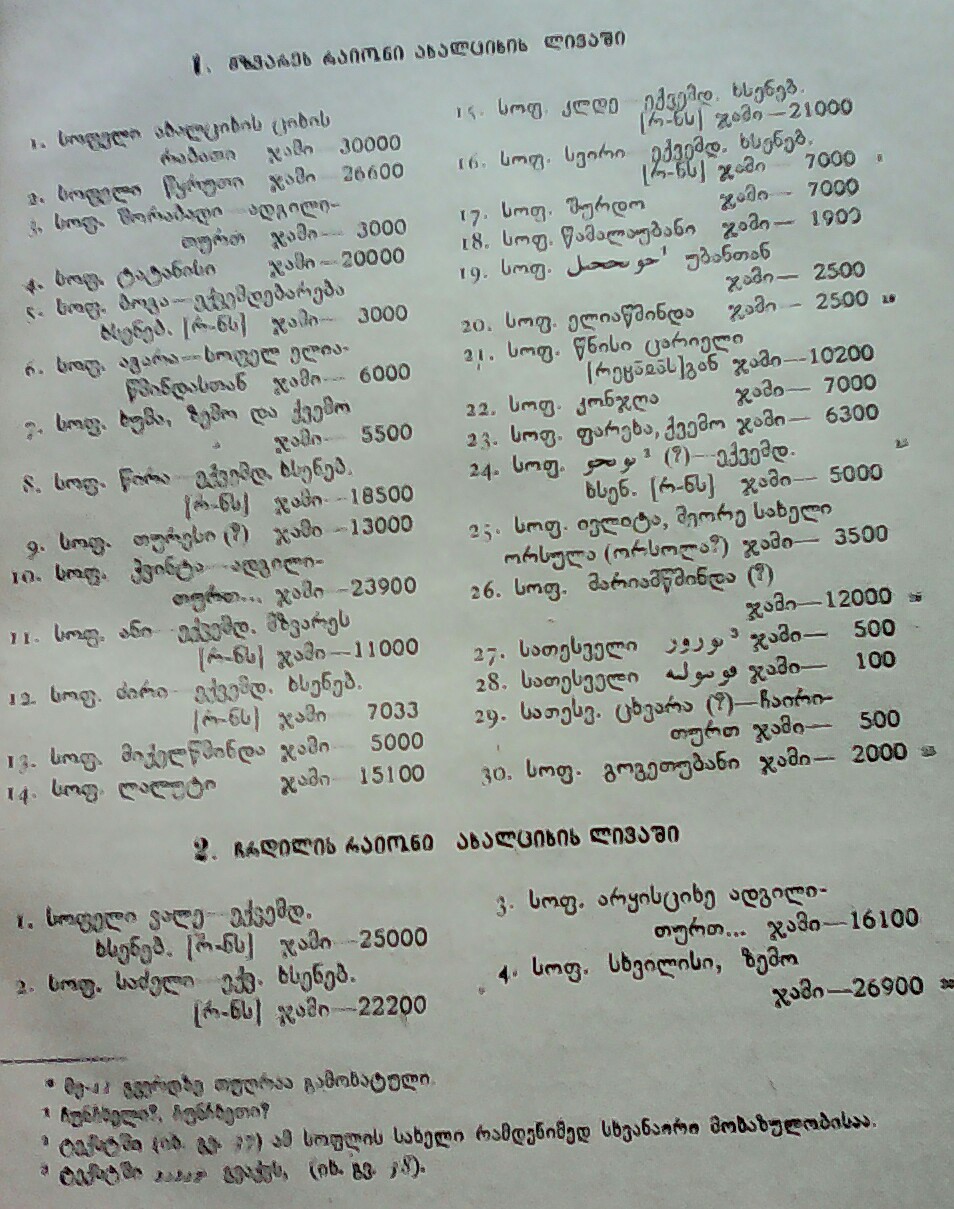 1. მზვარეს რაიონი ახალციხის ლივაში
1. სოფელი ახალციხის ციხის
რაბათი ჯამი 30000
2. სოფელი წყრუთი ჯამი 26600
3. სოფ. ადგილი-
თურთ ჯამი— 3000
4. სოფ. ტატანისი ჯამი—20000
5. სოფ. ბოგა— ექვემდებარება
ხსენებ. [რ-ნს] ჯამი— 3000
6. სოფ. აგარა—სოფელ ელია-
წმინდასთან ჯამი— 6000
7. სოფ. ხუმა, ზემო და ქვემო
ჯამი— 5500
8. სოფ. წირა— ექვემდ. ხსენებ.
[რ-ნს] ჯამი—18500
9. სოფ. თურესი (?) ჯამი—13000
10. სოფ. ჭვინტა— ადგილი-
თურთ... ჯამი —23900
11. სოფ. ანი— ექვემდ. მზვარეს
[რ-ნს] ჯამი—11000
12. სოფ. ძირი— ექვემდ. ხსენებ.
[რ-ნს] ჯამი— 7033
13. სოფ. მიქელწმინდა ჯამი— 5000
14. სოფ. ღაღუტი ჯამი— 15100
15. სოფ. კლდე— ექვემდ. ხსენებ.
[რ-ნს] ჯამი—21000
16. სოფ. სვირი— ექვემდ. ხსენებ.
[რ-ნს] ჯამი— 7000
17. სოფ. შურდო ჯამი— 7000
18. სოფ. წამალაუბანი ჯამი— 1900
19. სოფ. ¹ უბანთან
ჯამი— 2500
20. სოფ. ელიაწმინდა ჯამი — 2500
21. სოფ. წნისი ცარიელი
ჯამი—10200
22. სოფ. კონჯღა ჯამი— 7000
23. სოფ. ფარეხა, ქვემო ჯამი— 6300
24. სოფ. ² (?)— ექვემდ.
ხსენ. [რ-ნს] ჯამი— 5000
25. სოფ. ივლიტა, მეორე სახელი
ორსულა (ორსოლა?) ჯამი— 3500
26. სოფ. მარიამწმინდა (?)
ჯამი—12000
27. სათესველი ³ ჯამი— 500
28. სათესველი ჯამი— 100
29. სათესვ. ცხვარა (?)—ჩაირი-
თურთ ჯამი— 500
30. სოფ. გოგეთუბანი ჯამი— 2000
2. ჩრდილის რაიონი ახალციხის ლივაში
1. სოფელი ვალე— ექვემდ.
ხსენებ. [რ-ნს] ჯამი—25000
2. სოფ. საძელი— ექვ. ხსენებ.
[რ-ნს] ჯამი—22200
3. სოფ. არყისციხე ადგილი-
თურთ... ჯამი—16100
4. სოფ. სხვილისი, ზემო
ჯამი—26900
გვერდზე თუღრაა გამოხატული.
² ტექსტში (იხ. გვ. ამ სოფლის სახელი რამდენიმედ სხვანაირი მოხაზულობისაა.
³ ტექსტში (იხ. გვ.